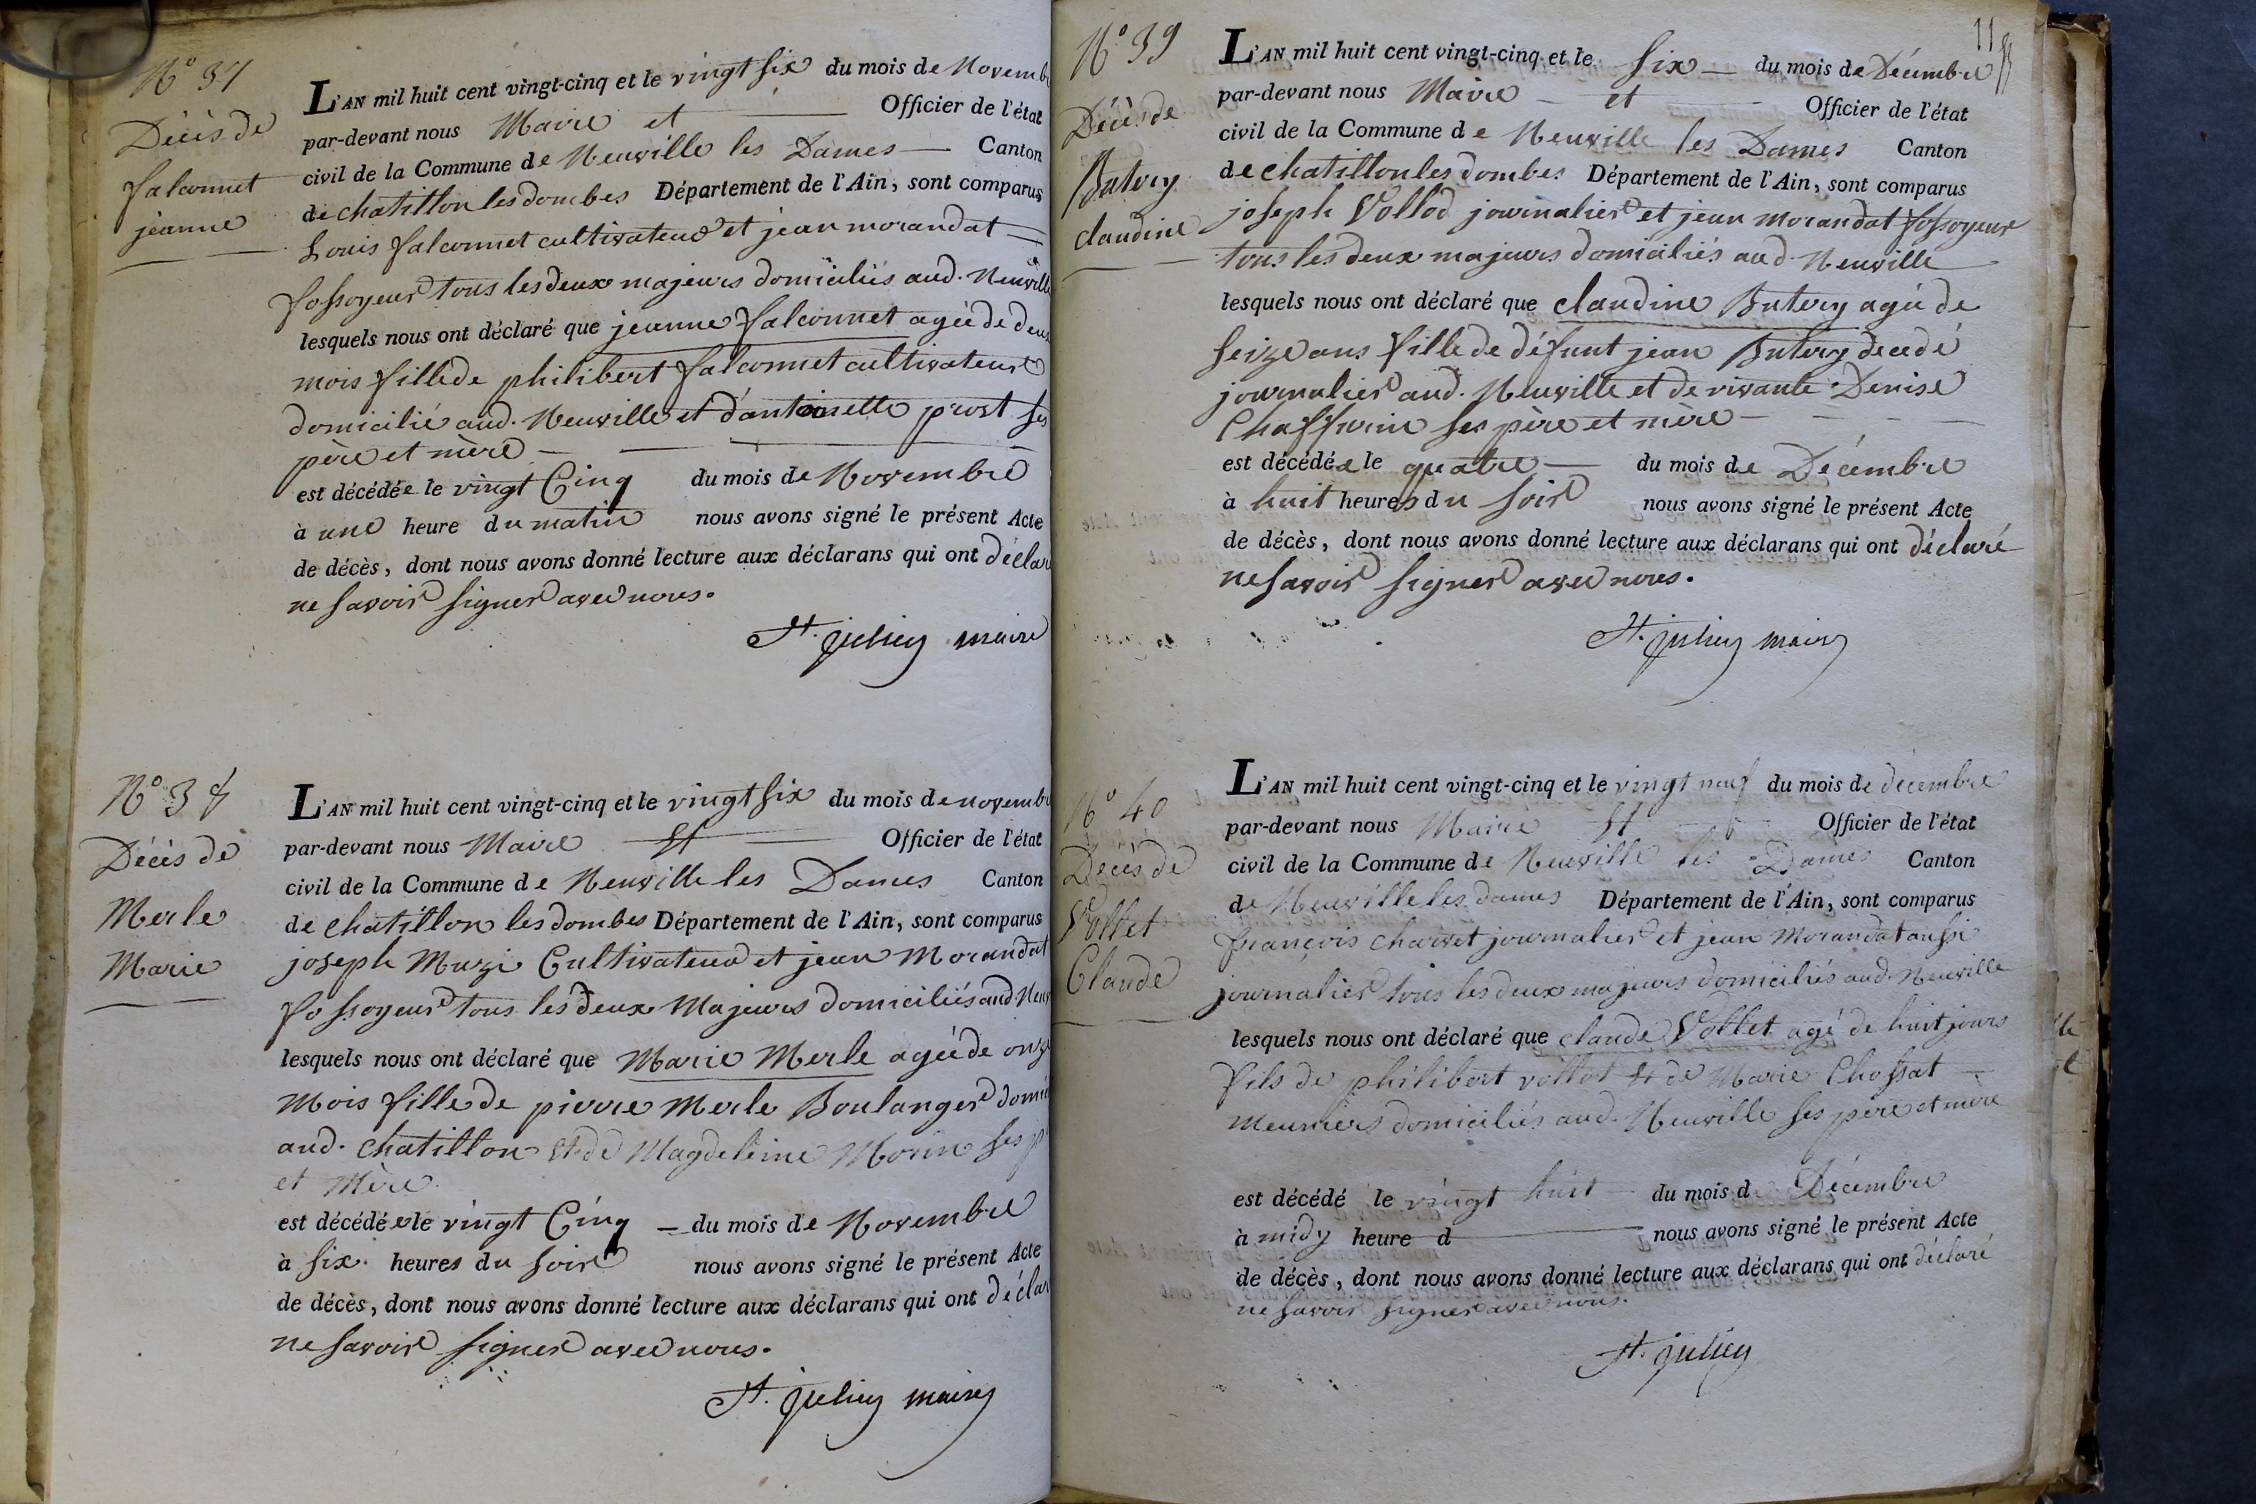 N° 37
Décès de
falconnet
jeanne
L'AN mil huit cent vingt-cinq et le vingt six du mois de Novemb
par-devant nous Maire et Officier de l'état
civil de la Commune de Neuville les Dames Canton
de chatillon les dombes Département de l'Ain, sont comparus
Louis falconnet cultivateur et jean morandat
fossoyeur tous les deux majeurs domiciliés aud. Neuville
lesquels nous ont déclaré que jeanne falconnet agée de deux
mois fille de philibert falconnet cultivateur
domicilié aud. Neuville et d'antoinette prost ses
père et mère
est décédée le vingt Cinq du mois de Novembre
à une heure du matin nous avons signé le présent Acte
de décès, dont nous avons donné lecture aux déclarans qui ont déclar
ne savoir signer avec nous.
St. julien maire
N° 38
Décès de
Merle
Marie
L'AN mil huit cent vingt-cinq et le vingt six du mois de novemb
par-devant nous Maire et Officier de l'état
civil de la Commune de Neuville les Dames Canton
de chatillon les dombes Département de l'Ain, sont comparus
joseph Muzi Cultivateur et jean Morandat
fossoyeur tous les deux Majeurs domiciliés aud Neuv
lesquels nous ont déclaré que Marie Merle agée de onze
Mois fille de pierre Merle Boulanger domi
aud. chatillon et de Magdeleine Morin ses p
et Mère
est décédée le vingt Cinq du mois de Novembre
à six heures du soir nous avons signé le présent Acte
de décès, dont nous avons donné lecture aux déclarans qui ont déclar
ne savoir signer avec nous.
St. julien maire
11
N° 39
Décès de
Butery
claudine
L'AN mil huit cent vingt-cinq et le six du mois de Décembre
par-devant nous Maire et Officier de l'état
civil de la Commune de Neuville les Dames Canton
de chatillon les dombes Département de l'Ain, sont comparus
joseph Vollod journalier et jean morandat fossoyeur
tous les deux majeurs domiciliés aud. Neuville
lesquels nous ont déclaré que claudine Butery agée de
seize ans fille de défunt jean Butery decedé
journalier aud. Neuville et de vivante Denise
Chaffurin ses père et mère
est décédée le quatre du mois de Décembre
à huit heures du soir nous avons signé le présent Acte
de décès, dont nous avons donné lecture aux déclarans qui ont déclaré
ne savoir signer avec nous.
St. julien maire
N° 40
Décès de
Vollet
Claude
L'AN mil huit cent vingt-cinq et le vingt neuf du mois de décembre
par-devant nous Maire et Officier de l'état
civil de la Commune de Neuville les Dames Canton
de Neuville les dames Département de l'Ain, sont comparus
françois charvet journalier et jean Morandat aussi
journalier tous les deux majeurs domiciliés aud. Neuville
lesquels nous ont déclaré que claude Vollet agé de huit jours
fils de philibert vollet et de Marie Chossat
meuniers domiciliés aud. Neuville ses père et mère
est décédé le vingt huit du mois d Décembre
à midy heure d nous avons signé le présent Acte
de décès, dont nous avons donné lecture aux déclarans qui ont déclaré
ne savoir signer avec nous.
St. julien